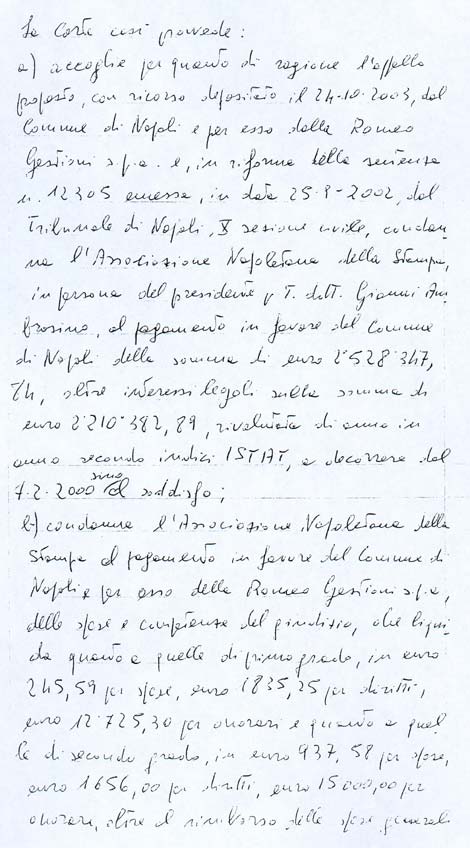 La Corte così provvede:
a) accoglie per quanto di ragione l'appello
proposto, con ricorso depositato il 24-10-2003, dal
Comune di Napoli e per esso dalla Romeo
Gestioni s.p.a. e, in riforma della sentenza
n. 12305 emessa, in data 25-9-2002, dal
Tribunale di Napoli, X sezione civile, condan-
na l'Associazione Napoletana della Stampa,
in persona del presidente p.t. dott. Gianni Am-
brosino, al pagamento in favore del Comune
di Napoli della somma di euro 2'528'347,
74, oltre interessi legali sulla somma di
euro 2'210'382,89, rivalutata di anno in
anno secondo indici ISTAT, a decorrere dal
7.2.2000 sino al soddisfo;
b) condanna l'Associazione Napoletana della
Stampa al pagamento in favore del Comune di
Napoli e per esso della Romeo Gestioni s.p.a,
delle spese e competenze del giudizio, che liqui-
da quanto a quelle di primo grado, in euro
245,59 per spese, euro 1835,25 per diritti,
euro 12'725,30 per onorari e quanto a quel-
le di secondo grado, in euro 937,58 per spese,
euro 1656,00 per diritti, euro 15000,00 per
onorari, oltre al rimborso delle spese generali